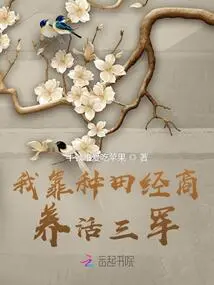 爱吃苹果 ◎ 著
我靠种田经商
养活三军
云起书院